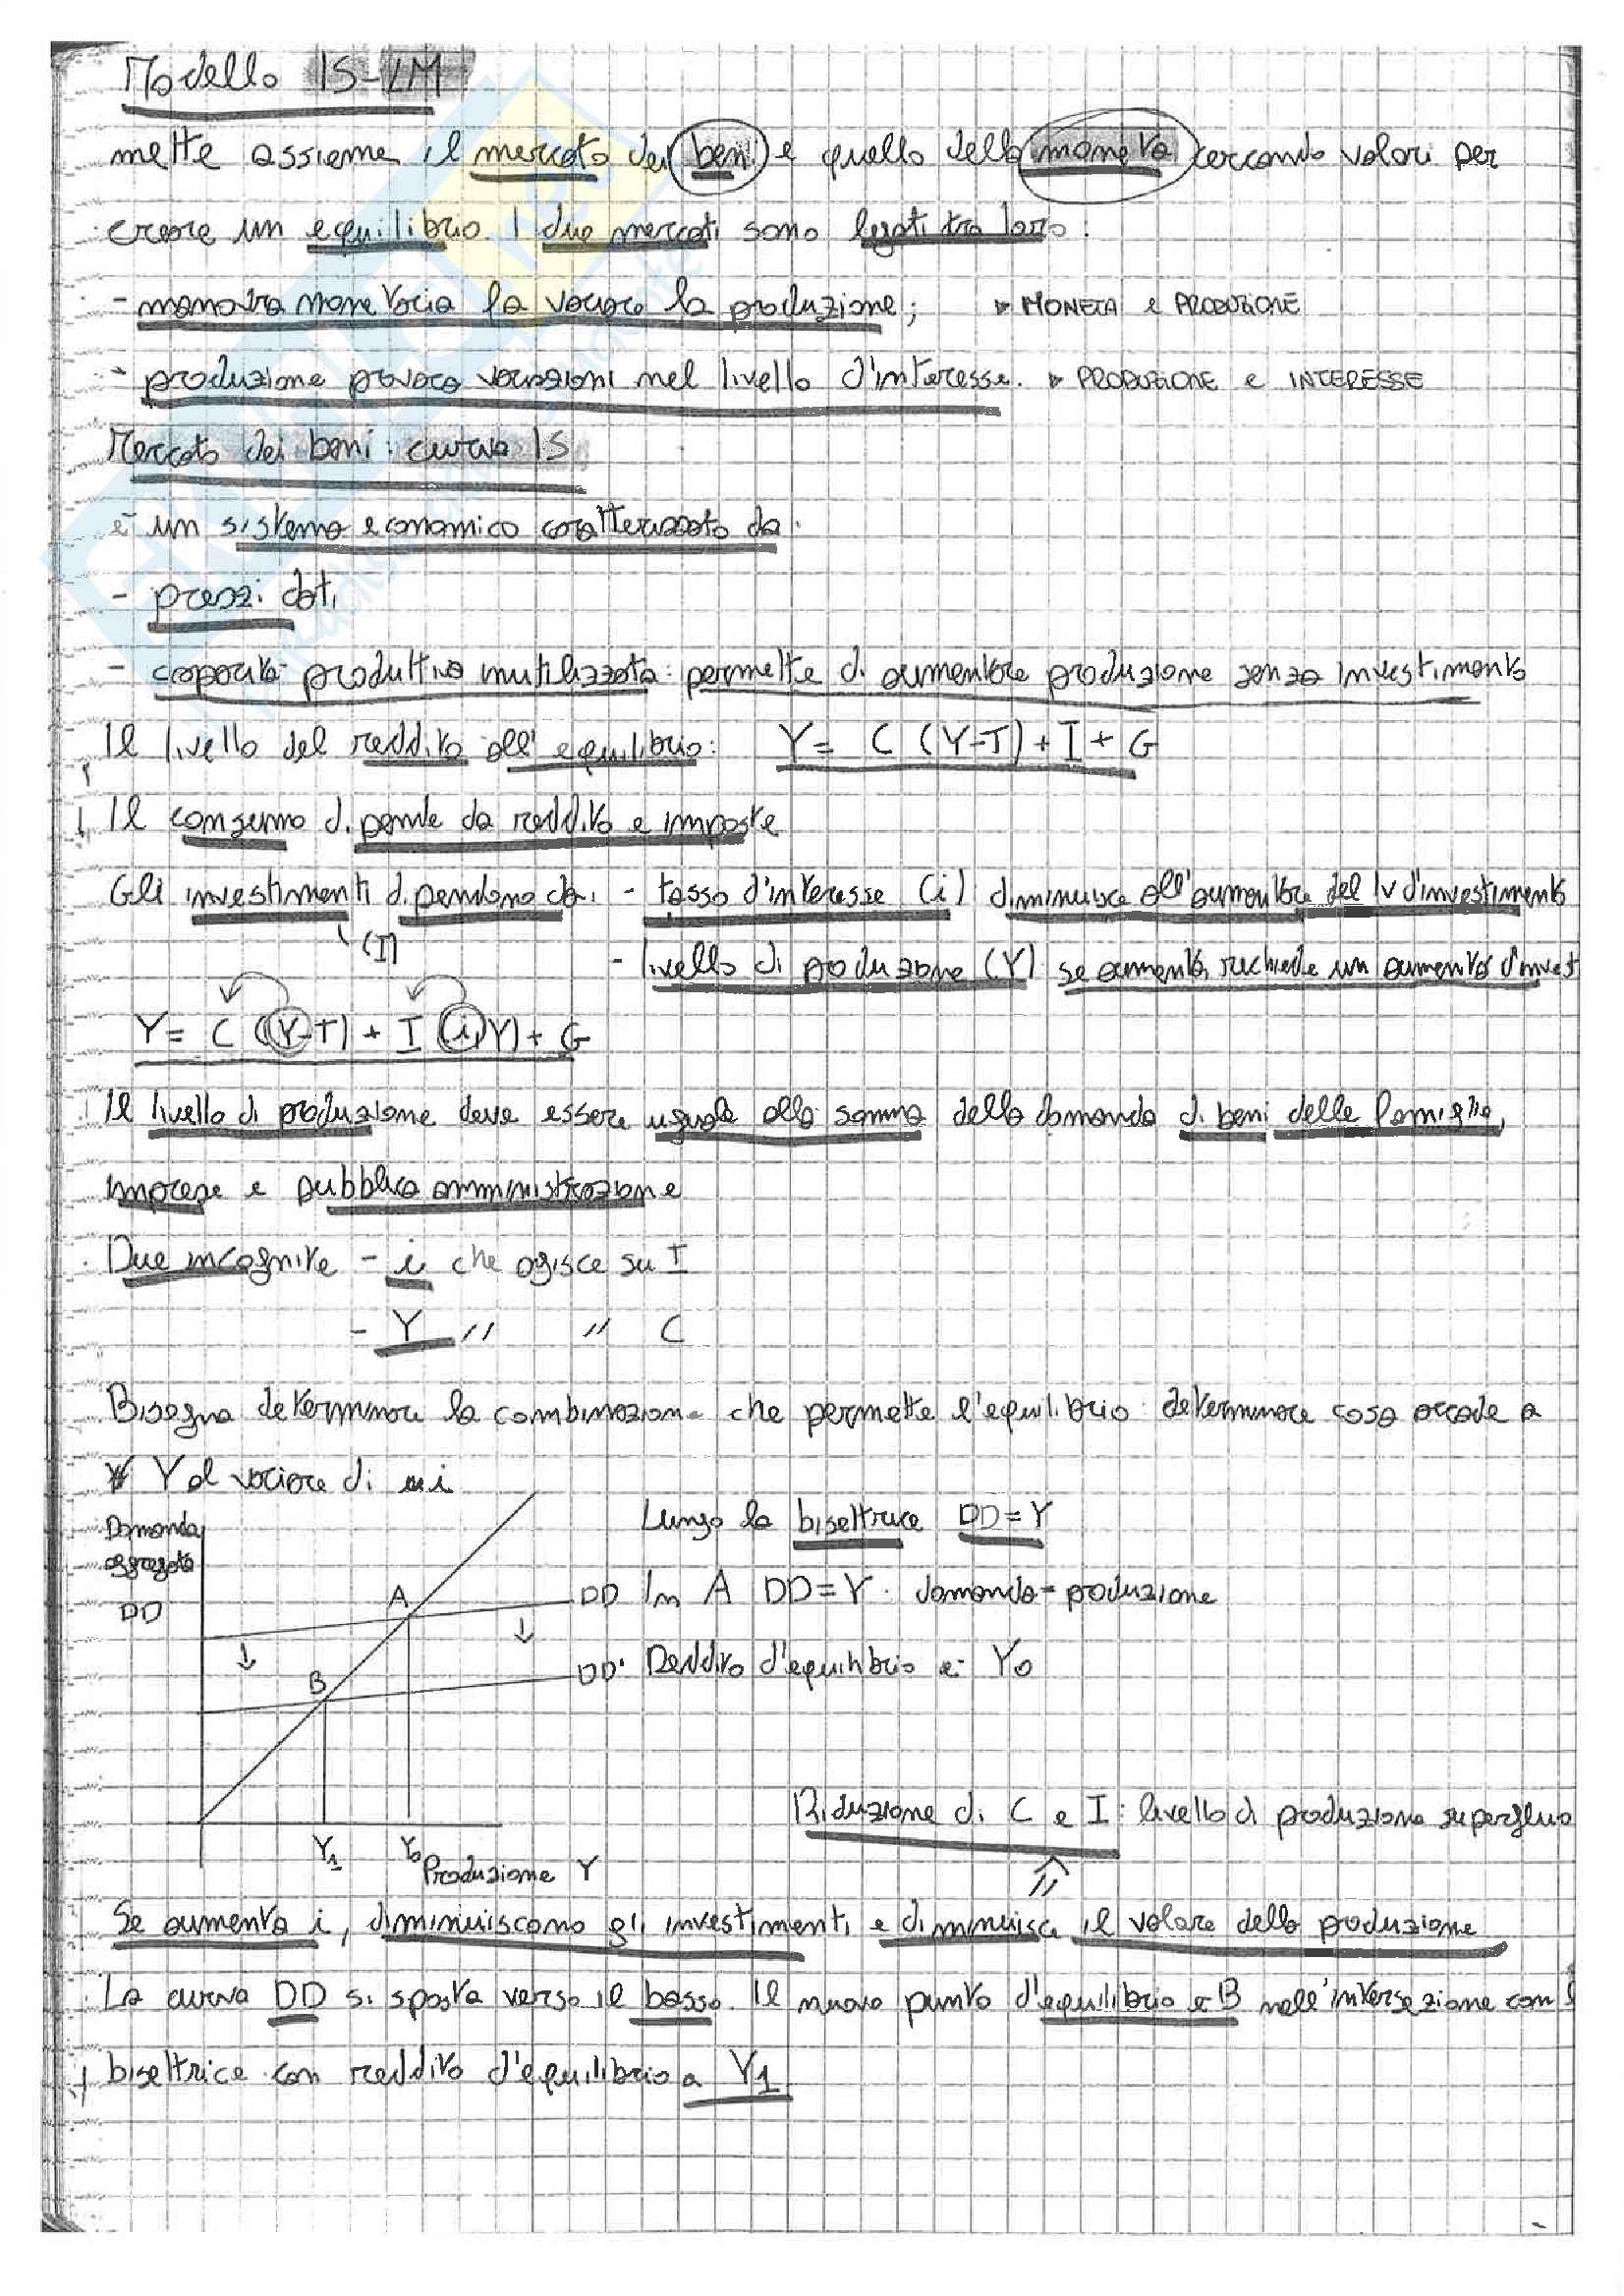 Modello IS-LM
mette assieme il mercato dei beni e quello della moneta cercando valori per
creare un equilibrio. I due mercati sono legati tra loro:
- manovra monetaria fa variare la produzione; ▹ MONETA e PRODUZIONE
- produzione provoca variazioni nel livello d'interesse. ▹ PRODUZIONE e INTERESSE
Mercato dei beni: curva IS
è un sistema economico caratterizzato da:
- prezzi dati
- capacità produttiva inutilizzata: permette di aumentare produzione senza investimento
Il livello del reddito all'equilibrio: Y = C (Y-T) + I + G
Il consumo dipende da reddito e imposte
Gli investimenti dipendono da: - tasso d'interesse (i) diminuisce all'aumentare del lv d'investimento
(I)
- livello di produzione (Y) se aumenta, richiede un aumento d'invest
Y = C (Y-T) + I (i,Y) + G
Il livello di produzione deve essere uguale alla somma della domanda di beni delle famiglie,
imprese e pubblica amministrazione
Due incognite - i che agisce su I
- Y // // C
Bisogna determinare la combinazione che permette l'equilibrio: determinare cosa accade a
Y al variare di i
Domanda
aggregata
DD
Lungo la bisettrice DD=Y
A
DD
In A DD=Y: domanda=produzione
B
DD'
Reddito d'equilibrio è Y0
Riduzione di C e I: livello di produzione superfluo
Y1 Y0
Produzione Y
Se aumenta i, diminuiscono gli investimenti e diminuisce il valore della produzione
La curva DD si sposta verso il basso. Il nuovo punto d'equilibrio è B nell'intersezione con l
bisettrice con reddito d'equilibrio a Y1